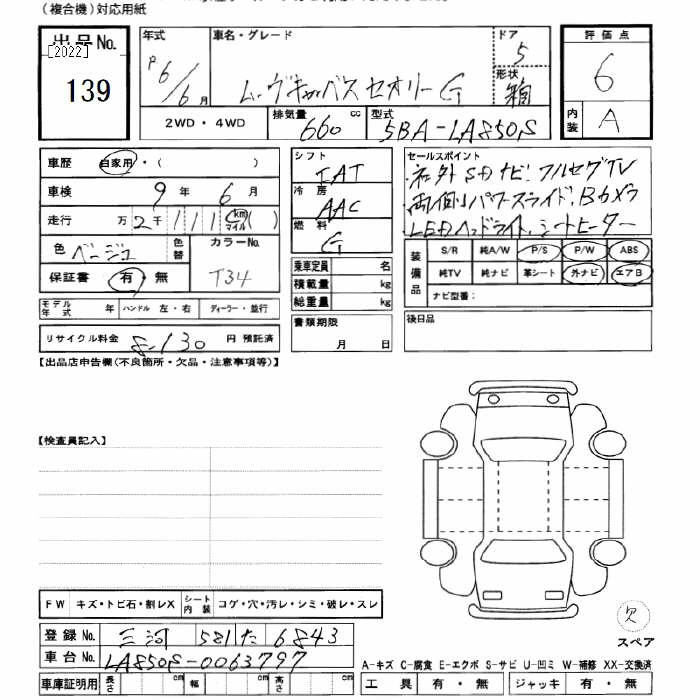 (複合機)対応用紙
出品No.
[2022]
139
年式
R6/6月
車名・グレード
ムーヴキャンバス セオリーG
ドア
5
形状
箱
評価点
6
内装
A
2WD・4WD
排気量
660
cc
型式
5BA-LA850S
車歴
自家用・( )
車検
9年 6月
走行
万2千111(km マイル)
色
ベージュ
色替
カラーNo.
T34
保証書
有・無
モデル年式
年
ハンドル 左・右
ディーラー・並行
リサイクル料金
8,130
円 預託済
シフト
IAT
冷房
AAC
燃料
G
乗車定員
名
積載量
kg
総重量
kg
書類期限
月 日
セールスポイント
・社外SDナビ!フルセグTV
・両側パワースライド!Bカメラ
・LEDヘッドライト,シートヒーター
装備品
S/R
純A/W
P/S
P/W
ABS
純TV
純ナビ
革シート
外ナビ
エアB
ナビ型番:
後日品
【出品店申告欄(不良箇所・欠品・注意事項等)】
【検査員記入】
FW
キズ・トビ石・割レX
シート内装
コゲ・穴・汚レ・シミ・破レ・スレ
登録No.
三河 581 た 6843
車台No.
LA850S-0063797
車庫証明用
長さ
cm
幅
cm
高さ
cm
欠
スペア
A-キズ C-腐食 E-エクボ S-サビ U-凹ミ W-補修 XX-交換済
工具
有・無
ジャッキ
有・無